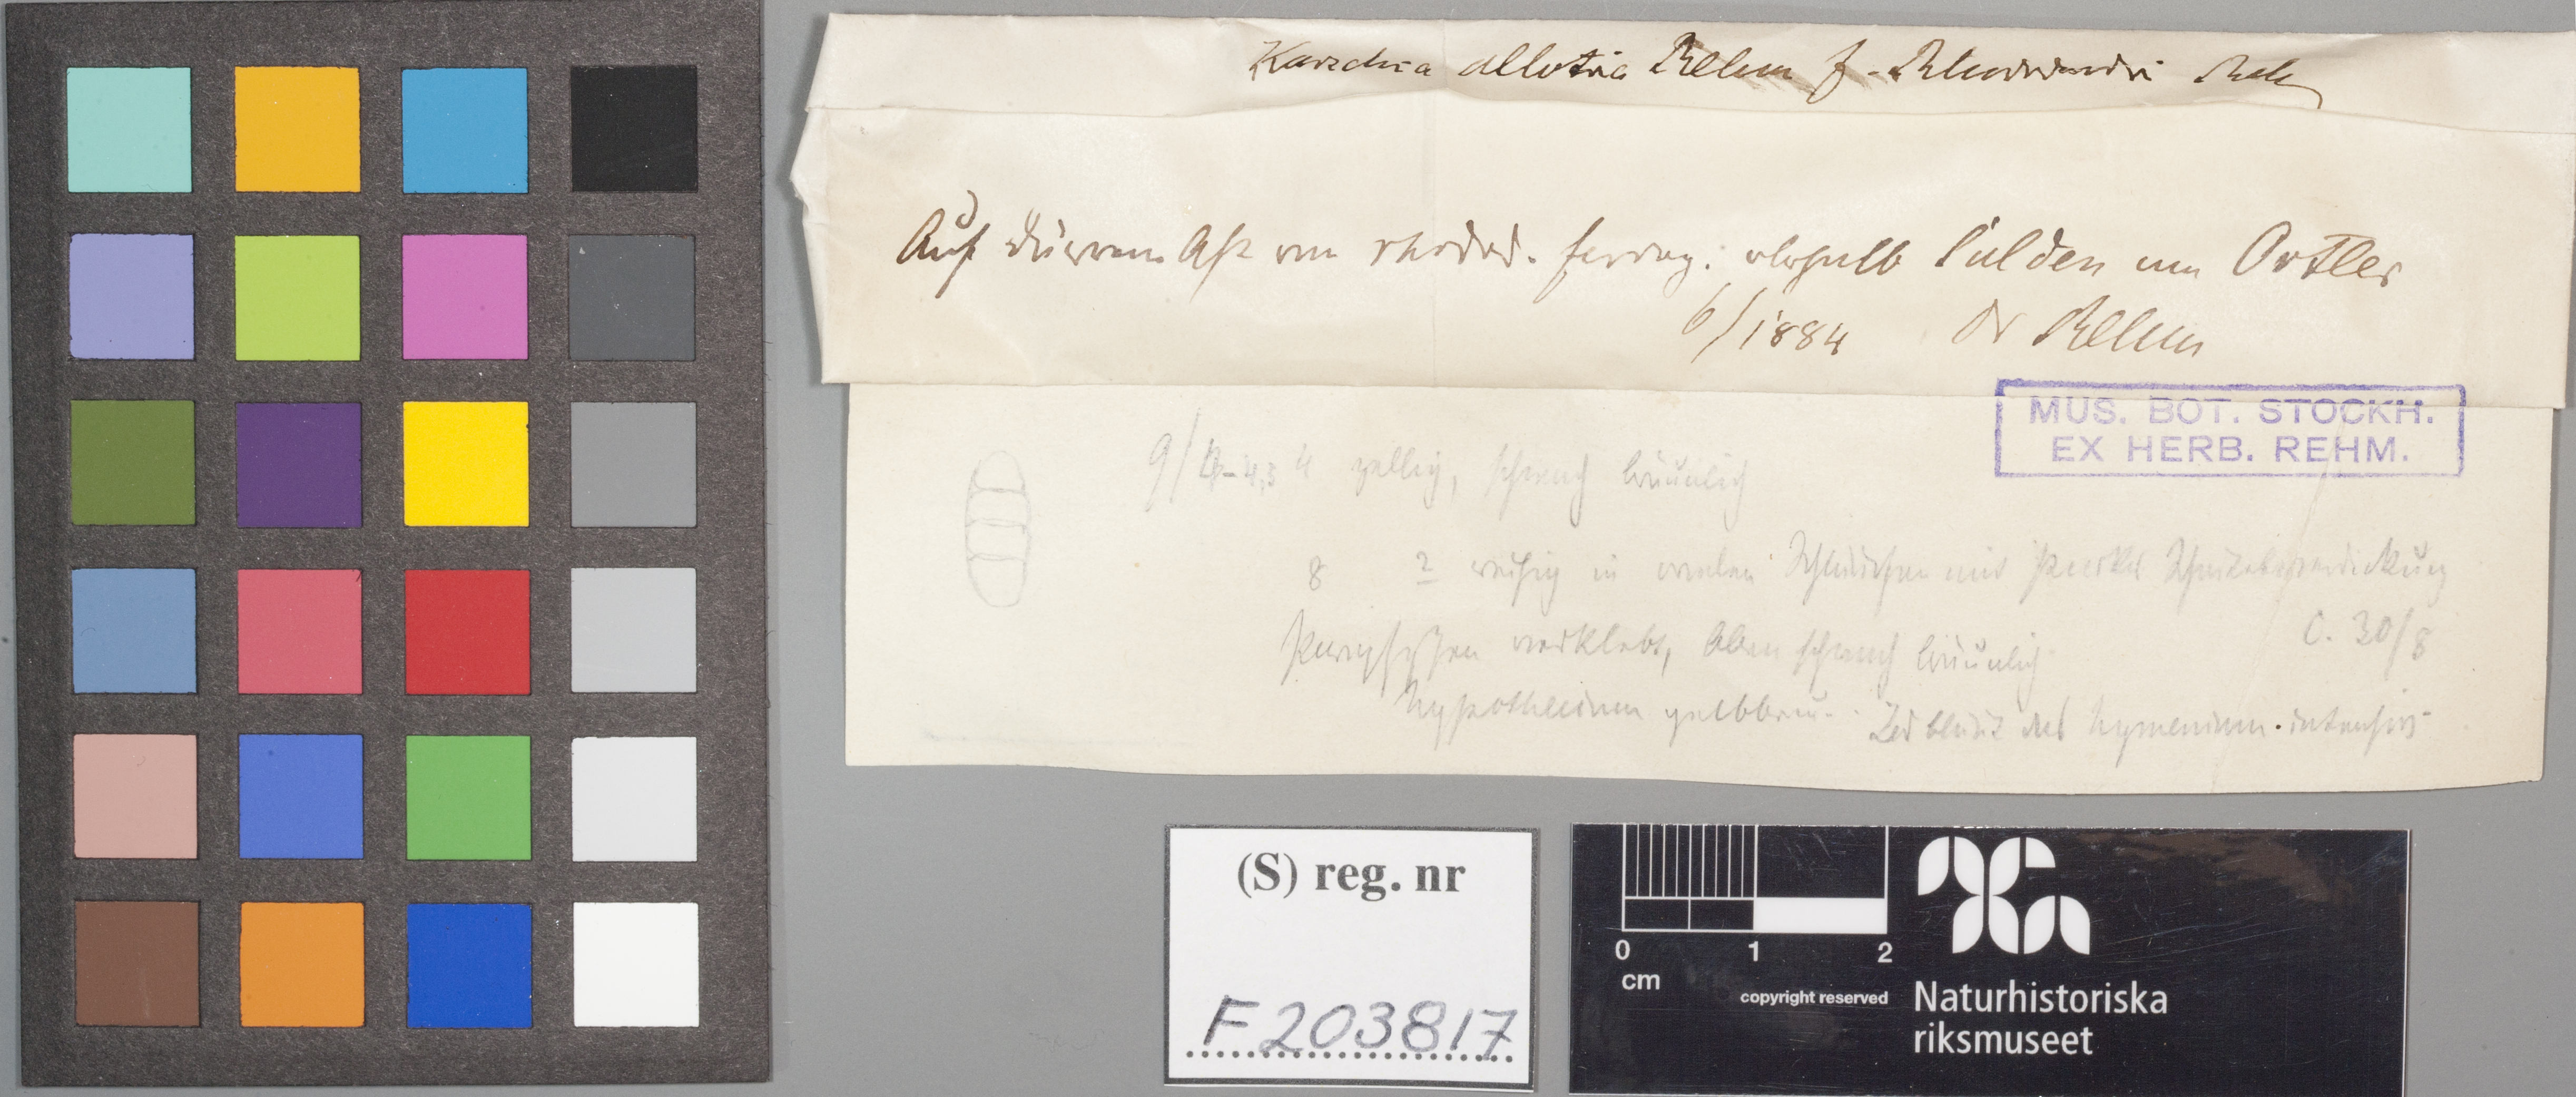 Karschia allotria Rehm f. Rhododendri Reh
Auf dürrem Ast von rhodod. ferrug: oberhalb Sulden am Ortler
6/1884 Dr Rehm
MUS. BOT. STOCKH.
EX HERB. REHM.
9/4-4,3 4 zellig, schwach bräunlich
8 2 reihig in ovalen Schläuchen mit starker Scheitelverdickung
C. 30/8
Paraphysen verklebt, oben schwach bräunlich
Hypothecium gelbbrau. Jod bläut das Hymenium intensiv
(S) reg. nr
F203817
0 1 2
cm
copyright reserved
Naturhistoriska
riksmuseet